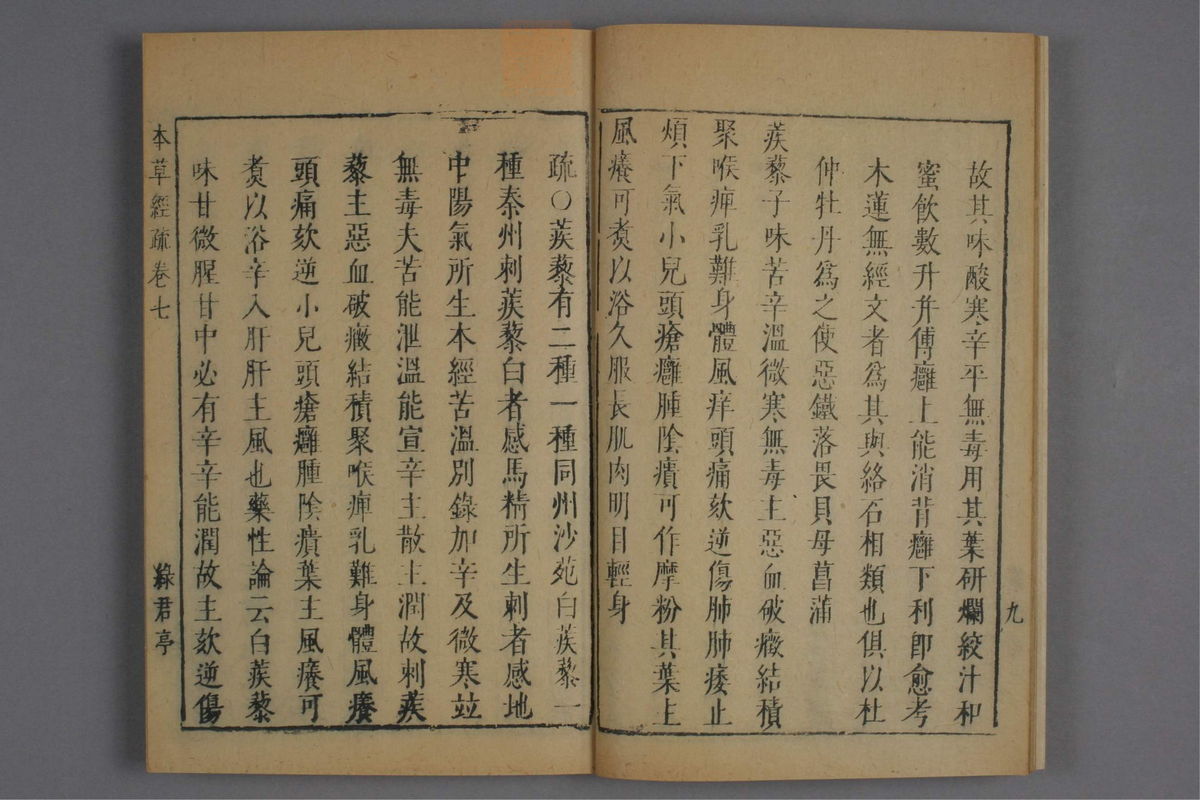 故其味酸寒辛平無毒用其葉研爛絞汁和
蜜飲數升并傅癰上能消背癰下利即愈考
木蓮無經文者爲其與絡石相類也俱以杜
仲牡丹爲之使惡鐵落畏貝母菖蒲
蒺藜子味苦辛溫微寒無毒主惡血破癥結積
聚喉痺乳難身體風痒頭痛欬逆傷肺肺痿止
煩下氣小兒頭瘡癰腫陰㿉可作摩粉其葉主
風癢可煑以浴久服長肌肉明目輕身
九
疏〇蒺藜有二種一種同州沙苑白蒺藜一
種秦州刺蒺藜白者感馬精所生刺者感地
中陽氣所生本經苦溫別錄加辛及微寒竝
無毒夫苦能泄溫能宣辛主散主潤故刺蒺
藜主惡血破癥結積聚喉痺乳難身體風癢
頭痛欬逆小兒頭瘡癰腫陰㿉葉主風癢可
煑以浴辛入肝肝主風也藥性論云白蒺藜
味甘微腥甘中必有辛辛能潤故主欬逆傷
本草經疏卷七
綠君亭